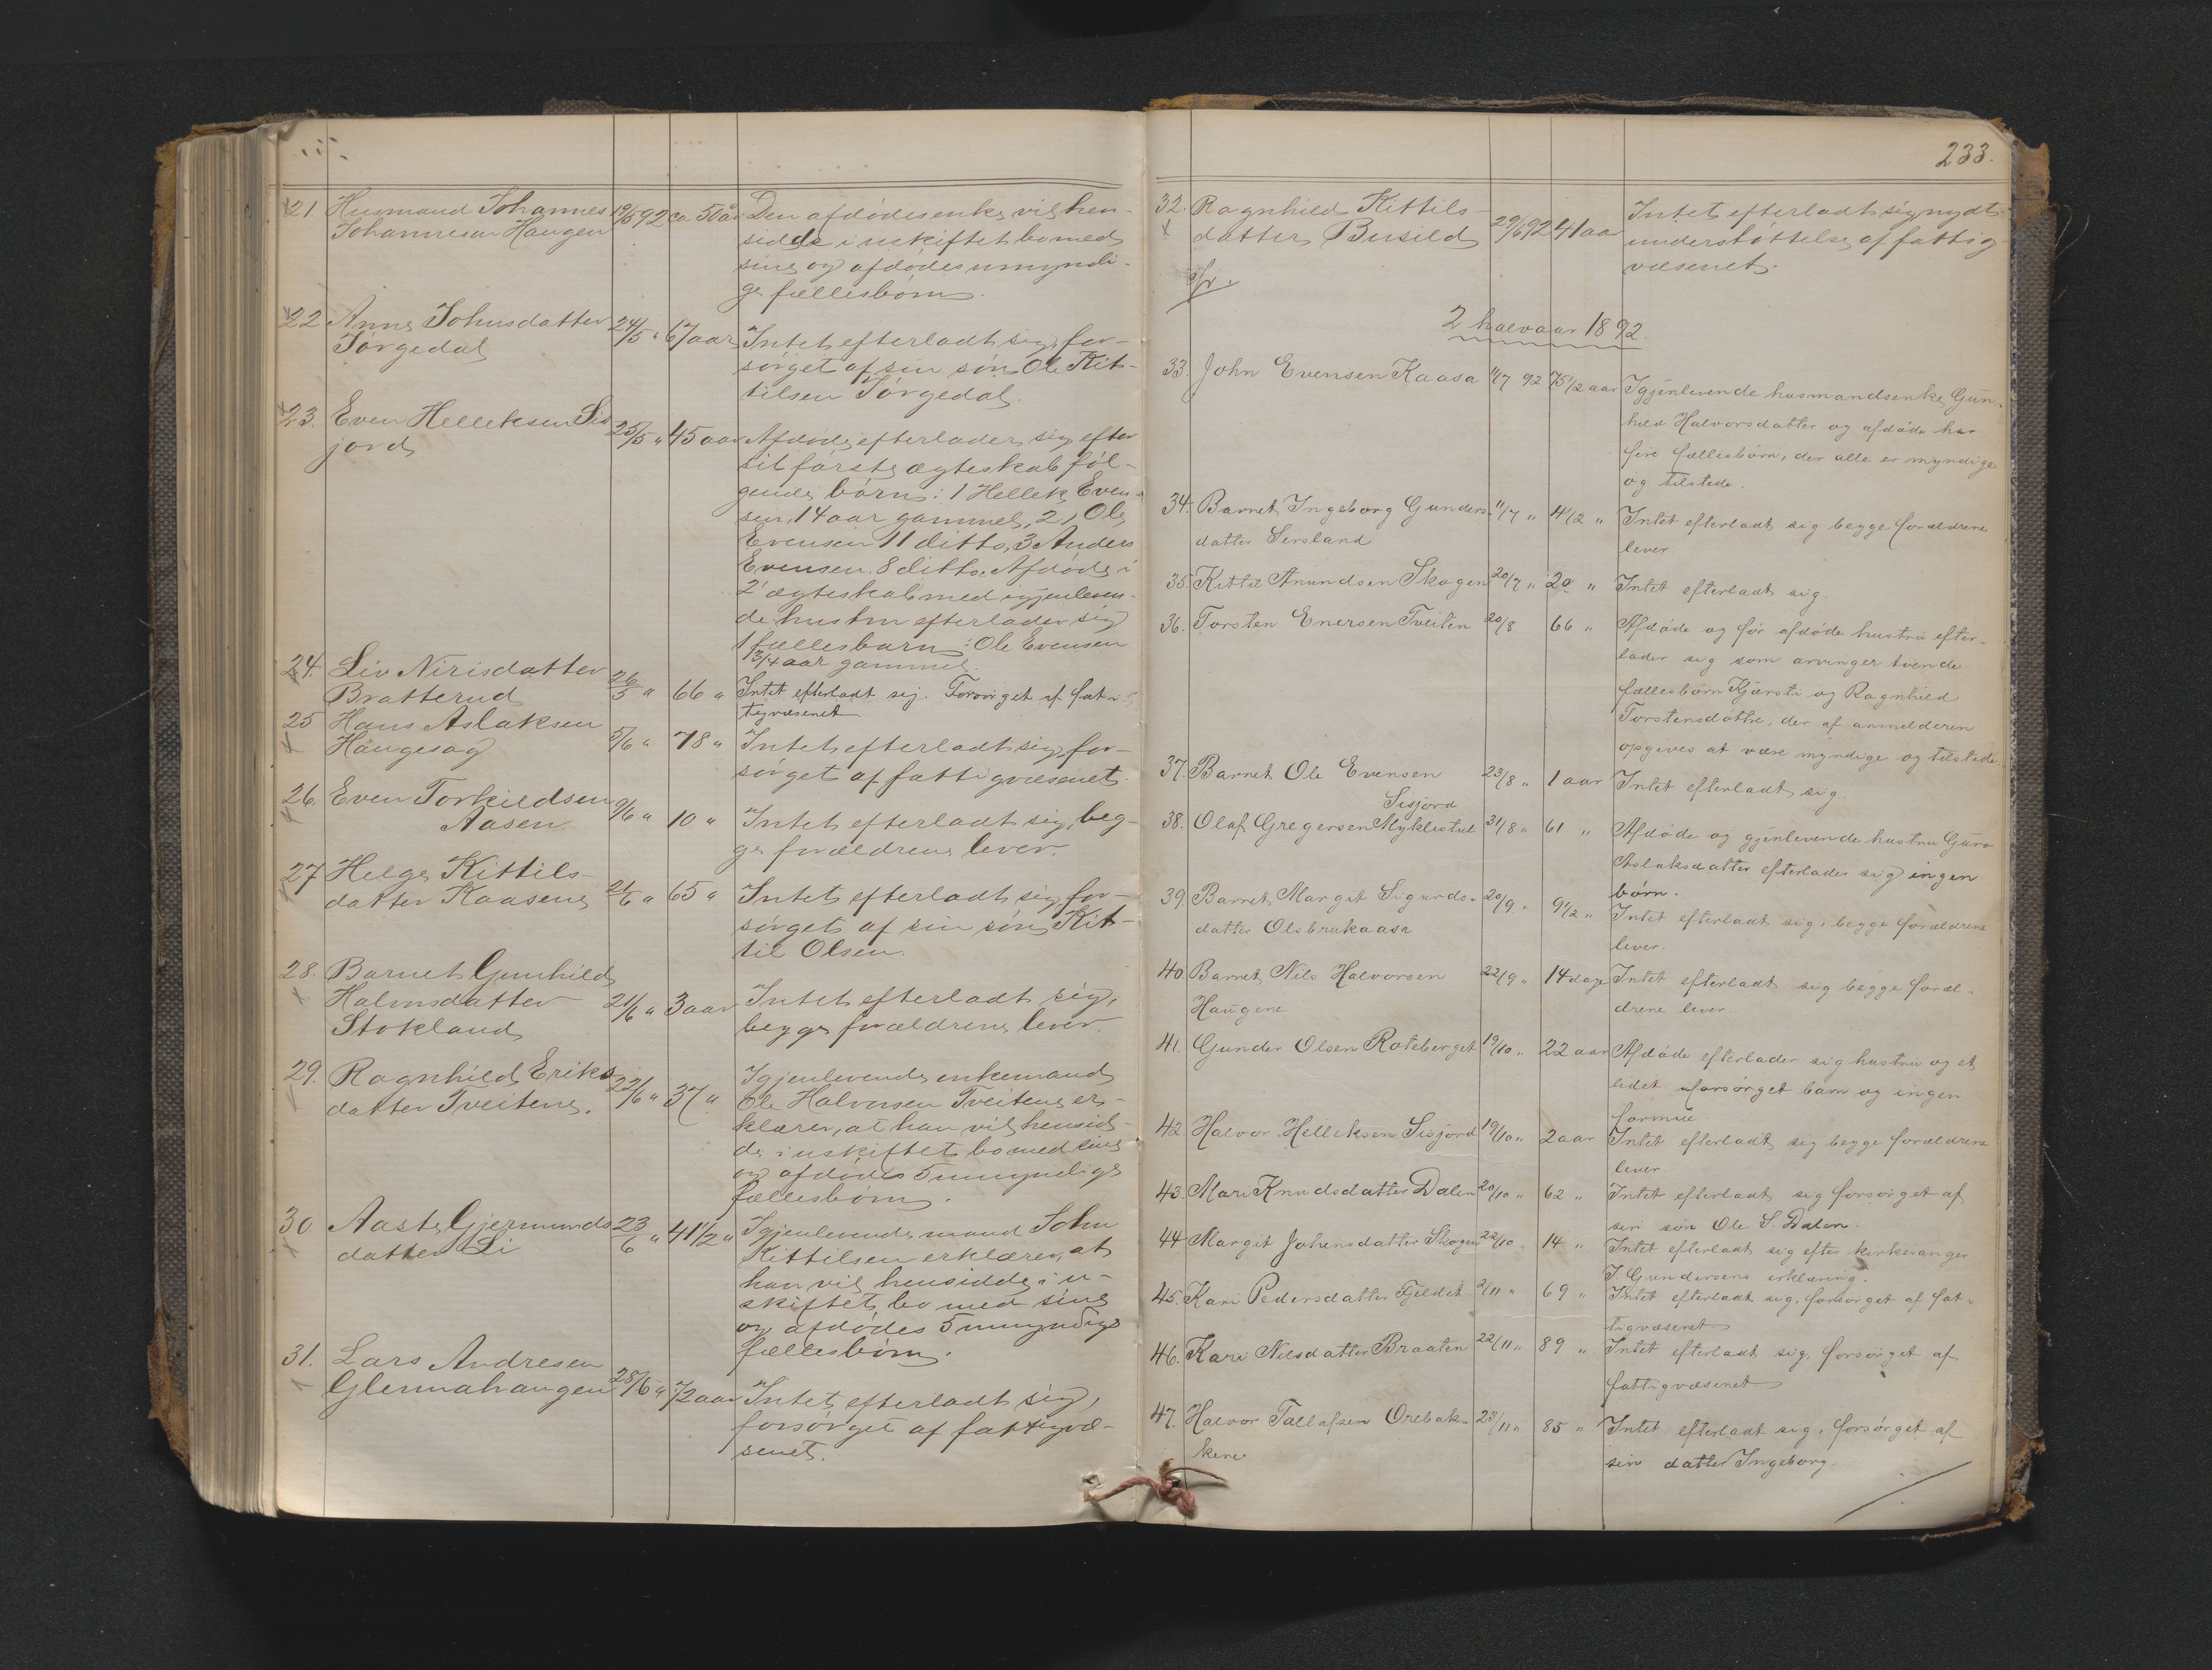 21. Husmand Johannes 19/5 92 ca 50 år Den afdødes enke vil hen-
Johannesen Haugen sidde i uskiftet bo med
sine og afdødes umyndi-
ge fællesbørn.
22 Anne Johnsdatter 24/5 " 67 aar Intet efterladt sig, for-
Tørgedal sørget af sin søn Ole Kit-
tilsen Tørgedal.
23. Even Helleksen Sis- 25/5 " 45 aar Afdøde efterlader sig efter
jord sit første ægteskab føl-
gende børn: 1 Hellek Even-
sen, 14 aar gammel, 2, Ole
Evensen 11 ditto, 3 Anders
Evensen 8 ditto. Afdøde i
2' ægteskab med igjenleven-
de hustru efterlader sig
1 fællesbarn: Ole Evensen
1 3/4 aar gammel.
24. Liv Nirisdatter 26/5 " 66 " Intet efterladt sig. Forsørget af fat-
Bratterud tigvæsenet
25 Hans Aslaksen 5/6 " 78 " Intet efterladt sig, for-
Haugesag sørget af fattigvæsenet.
26. Even Torkildsen 9/6 " 10 " Intet efterladt sig, beg-
Aasen ge forældrene lever.
27 Helge Kittils- 21/6 " 65 " Intet efterladt sig, for-
datter Kaasene sørget af sin søn Kit-
til Olsen.
28. Barnet Gunhild
Halvorsdatter 21/6 " 3 aar Intet efterladt sig,
Stokland begge forældrene lever.
29. Ragnhild Eriks- 22/6 " 37 " Igjenlevende enkemand
datter Tveitene. Ole Halvorsen Tveitene er-
klærer, at han vil hensid-
de i uskiftet bo med sine
og afdødes 5 umyndige
fællesbørn.
30 Aaste Gjermunds- 23/6 " 41 1/2 " Igjenlevende mand John
datter Li Kittilsen erklærer, at
han vil hensidde i u-
skiftet bo med sine
og afdødes 5 umyndige
fællesbørn.
31. Lars Andresen
Glennahaugen 28/6 " 72 aar Intet efterladt sig,
forsørget af fattigvæ-
senet.
233.
32. Ragnhild Kittils- 29/6 92 41 aar Intet efterladt sig nydt
datter Busild understøttelse af fattig-
væsenet.
2 halvaar 1892.
33. John Evensen Kaasa 11/7 92 75 1/2 aar Igjenlevende husmandsenke Gun-
hild Halvorsdatter og afdøde har
fire fællesbørn, der alle er myndige
og tilstede.
34. Barnet Ingeborg Gunders- 11/7 " 4 1/2 " Intet efterladt sig begge forældrene
datter Sersland lever
35. Kittil Anundsen Skogen 20/7 " 20 " Intet efterladt sig.
36. Torsten Enersen Tveiten 20/8 66 " Afdøde og før afdøde hustru efter-
lader sig som arvinger tvende
fællesbørn Kjersti og Ragnhild
Torstensdøttre, der af anmelderen
opgives at være myndige og tilstede.
37. Barnet Ole Evensen 23/8 " 1 aar Intet efterladt sig
Sisjord
38. Olaf Gregersen Myklestul 31/8 " 61 " Afdøde og gjenlevende hustru Guro
Aslaksdatter efterlader sig ingen
børn.
39. Barnet Margit Sigurds- 20/9 " 9 1/2 " Intet efterladt sig, begge forældrene
datter Olsbrukaasa lever.
40 Barnet Nils Halvorsen 22/9 " 14 dage Intet efterladt sig begge foræl-
Haugene drene lever
41. Gunder Olsen Roteberget 19/10 " 22 aar Afdøde efterlader sig hustru og et
lidet uforsørget barn og ingen
formue.
42 Halvor Helleksen Sisjord 19/10 " 2 aar Intet efterladt sig begge forældrene
lever.
43. Mari Knudsdatter Dalen 20/10 " 62 " Intet efterladt sig forsørget af
sin søn Ole S. Dalen.
44 Margit Johnsdatter Skogen 22/10 " 14 " Intet efterladt sig efter kirkesanger
J. Gundersens erklæring.
45. Kari Pedersdatter Fjeldet 2/11 " 69 " Intet efterladt sig, forsørget af fat-
tigvæsenet
46. Kari Nilsdatter Braaten 22/11 " 89 " Intet efterladt sig, forsørget af
fattigvæsenet
47. Halvor Tallafsen Orebak- 23/11 " 85 " Intet efterladt sig, forsørget af
kene sin datter Ingeborg.